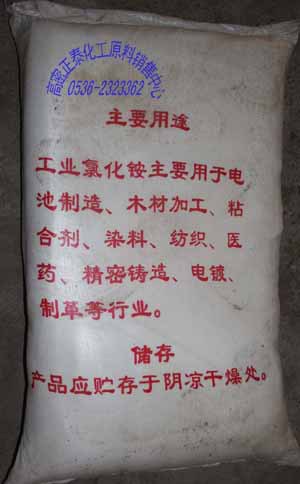 高密正泰化工原料销售中心
0536-2323362
主要用途
工业氯化铵主要用于电
池制造、木材加工、粘
合剂、染料、纺织、医
药、精密铸造、电镀、
制革等行业。
储存
产品应贮存于阴凉干燥处。